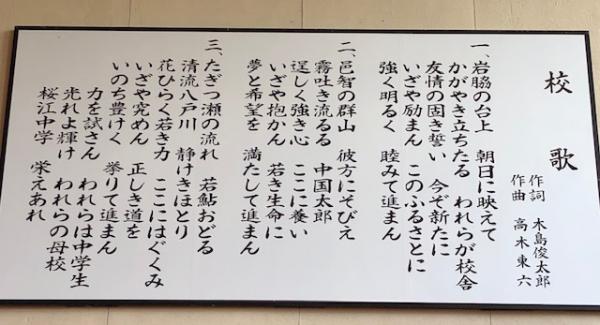 校歌
作詞 木島俊太郎
作曲 高木東六
一、岩脇の台上 朝日に映えて
かがやき立ちたる われらが校舎
友情の固き誓い 今ぞ新たに
いざや励まん このふるさとに
強く明るく 睦みて進まん
二、邑智の群山 彼方にそびえ
霧吐き流るる 中国太郎
逞しく強き心 ここに養い
いざや抱かん 若き生命に
夢と希望を 満たして進まん
三、たぎつ瀬の流れ 若鮎おどる
清流八戸川 静けきほとり
花ひらく若き力 ここにはぐくみ
いざや究めん 正しき道を
いのち豊けく 挙りて進まん
力を試さん われらは中学生
光れよ輝け われらの母校
桜江中学 栄えあれ